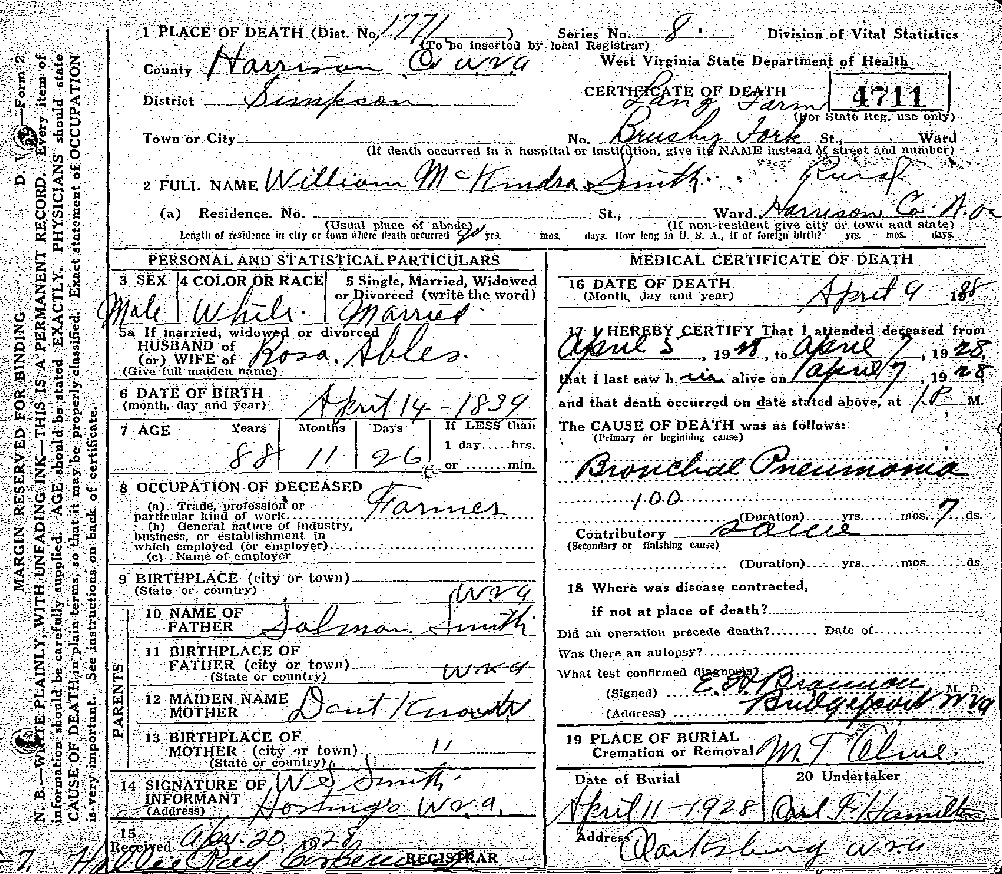 1 PLACE OF DEATH (Dist. No. 1771 ) Series No. 8. Division of Vital Statistics
(To be inserted by local Registrar)
County Harrison Co W Va West Virginia State Department of Health
CERTIFICATE OF DEATH 4711
District Simpson Lang Farm
(For State Reg. use only)
Town or City No. Brushy Fork St., Ward
(If death occurred in a hospital or institution, give its NAME instead of street and number)
2 FULL NAME William McKindra Smith. Rural
(a) Residence. No. St., Ward. Harrison Co.
(Usual place of abode) (If non-resident give city or town and state)
Length of residence in city or town where death occurred yrs. mos. days. How long in U. S. A., if of foreign birth? yrs. mos. days.
PERSONAL AND STATISTICAL PARTICULARS
3 SEX 4 COLOR OR RACE 5 Single, Married, Widowed
or Divorced (write the word)
Male White. Married.
5a If married, widowed or divorced
HUSBAND of
(or) WIFE of Rosa. Ables.
(Give full maiden name)
6 DATE OF BIRTH
(month, day and year) April 14 - 1839
7 AGE Years Months Days If LESS than
1 day hrs.
88 11 26
or min.
8 OCCUPATION OF DECEASED
(a) Trade, profession or
particular kind of work Farmer
(b) General nature of industry,
business, or establishment in
which employed (or employer)
(c) Name of employer
9 BIRTHPLACE (city or town)
(State or country) W Va
PARENTS
10 NAME OF
FATHER Salmon Smith
11 BIRTHPLACE OF
FATHER (city or town)
(State or country) W Va
12 MAIDEN NAME
MOTHER
13 BIRTHPLACE OF
MOTHER (city or town) "
(State or country)
14 SIGNATURE OF
INFORMANT W S Smith
(Address) W Va.
15
Received Apr. 20, 1928
REGISTRAR
MEDICAL CERTIFICATE OF DEATH
16 DATE OF DEATH
(Month, day and year) April 9 1928
17 I HEREBY CERTIFY That I attended deceased from
April 3, 1928, to April 7, 1928,
that I last saw him alive on April 7, 1928
and that death occurred on date stated above, at 1 P. M.
The CAUSE OF DEATH was as follows:
(Primary or beginning cause)
Bronchial Pneumonia
100
(Duration) yrs. mos. 7 ds.
Contributory same
(Secondary or finishing cause)
(Duration) yrs. mos. ds
18 Where was disease contracted,
if not at place of death?
Did an operation precede death? Date of
Was there an autopsy?
What test confirmed diagnosis?
(Signed) M. D.
(Address) Bridgeport W Va
19 PLACE OF BURIAL
Cremation or Removal
Date of Burial 20 Undertaker
April 11 - 1928 Carl F. Hamilton
Address Clarksburg W Va
MARGIN RESERVED FOR BINDING D. V. S.—Form 2.
N. B.—WRITE PLAINLY, WITH UNFADING INK—THIS IS A PERMANENT RECORD. Every item of
information should be carefully supplied. AGE should be stated EXACTLY. PHYSICIANS should state
CAUSE OF DEATH in plain terms, so that it may be properly classified. Exact statement of OCCUPATION
is very important. See instructions on back of certificate.